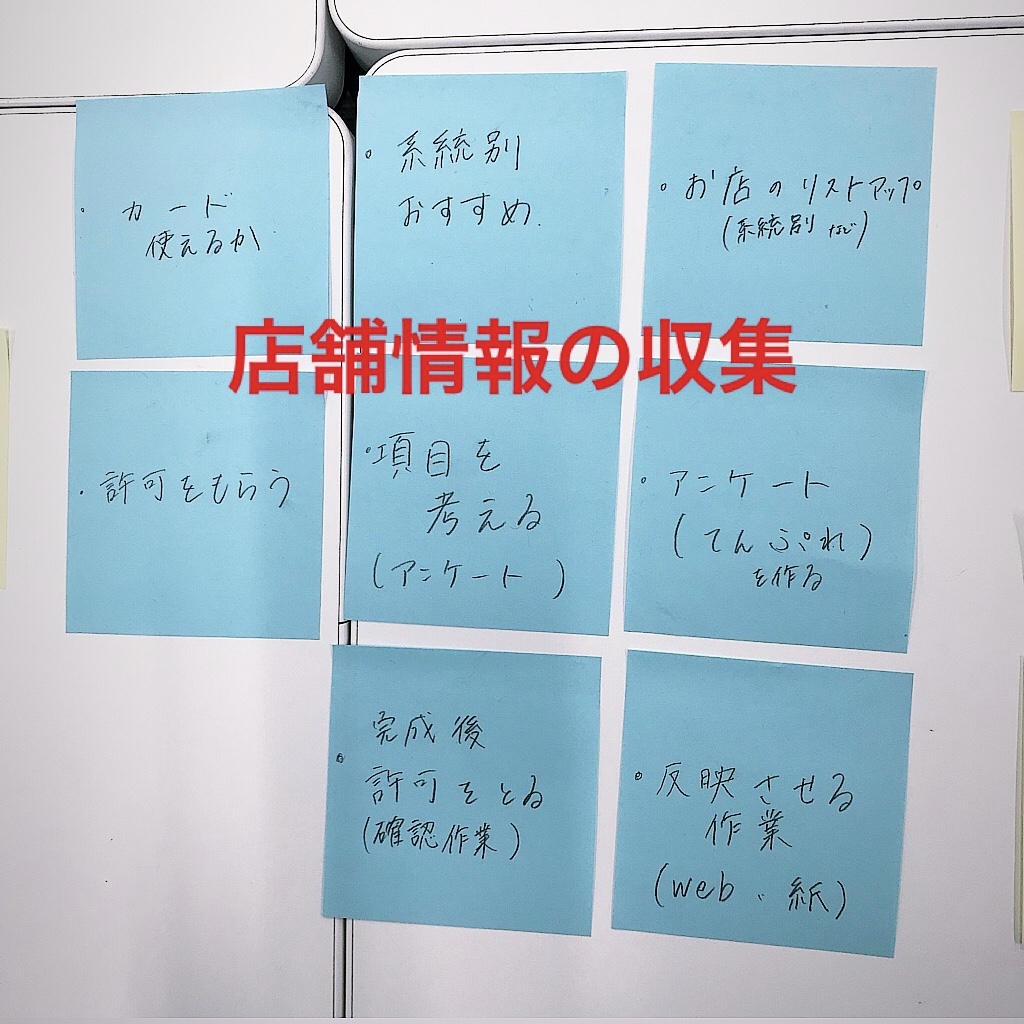 ・カード
使えるか
・系統別
おすすめ.
・お店のリストアップ
(系統別など)
店舗情報の収集
・許可をもらう
・項目を
考える
(アンケート)
・アンケート
(てんぷれ)
を作る
・完成後
許可をとる
(確認作業)
・反映させる
作業
(web、紙)